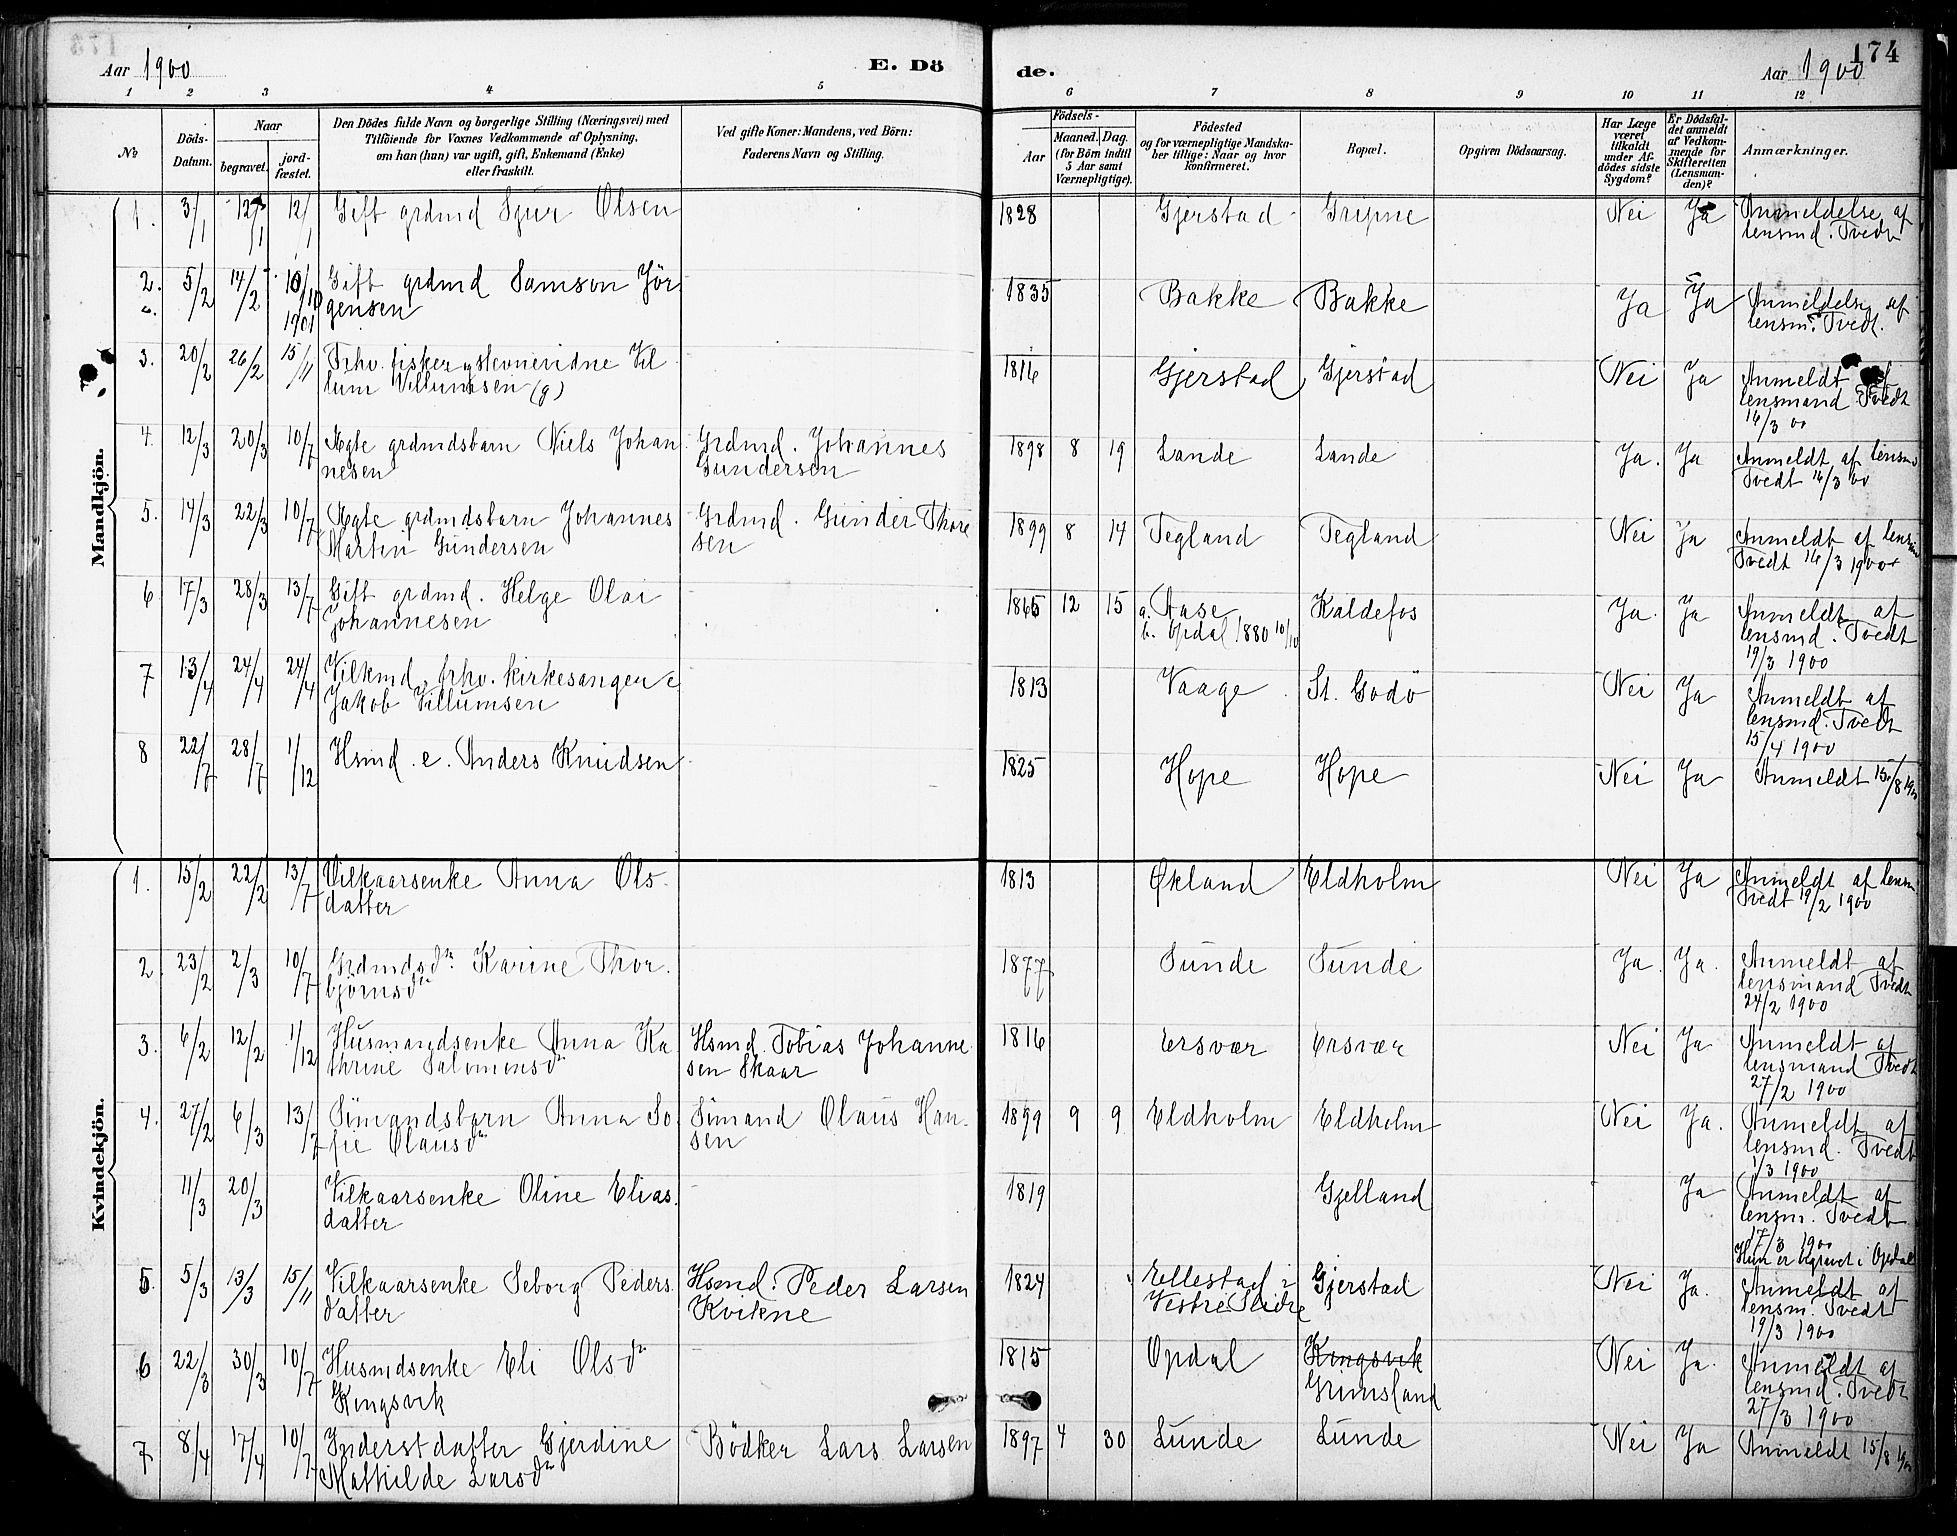 Aar 1900
E. Dö
de.
Aar 1900
174
1 2 3 4 5
6 7 8 9 10 11 12
№
Döds-Datum.
Naar
begravet.
jord-fæstet.
Den Dödes fulde Navn og borgerlige Stilling (Næringsvei) med
Tilföiende for Voxnes Vedkommende af Oplysning,
om han (hun) var ugift, gift, Enkemand (Enke)
eller fraskilt.
Ved gifte Koner: Mandens, ved Börn:
Faderens Navn og Stilling.
Födsels-
Aar
Maaned. Dag.
(for Börn indtil
5 Aar samt
Værnepligtige).
Födested
og for værnepligtige Mandska-
ber tillige: Naar og hvor
konfirmeret.
Bopæl.
Opgiven Dödsaarsag.
Har Læge
været
tilkaldt
under Af-
dödes sidste
Sygdom?
Er Dödsfal-
det anmeldt
af Vedkom-
mende for
Skifteretten
(Lensman-
den)?
Anmærkninger.
Mandkjön.
1. 3/1 12/1 12/1 Gift grdmd Sjur Olsen 1828 Gjerstad Gripne Nei Ja Anmeldelse af
lensmd. Tvedt
2. 5/2 14/2 10/10 Gift grdmd Samson Jör 1835 Bakke Bakke Ja Ja Anmeldelse af
1901 gensen lensm. Tvedt.
3. 20/2 26/2 15/11 Frhv. fisker og stevnevidne Vil 1816 Gjerstad Gjerstad Nei Ja Anmeldt af
lum Villumsen (g) lensmand Tvedt
16/3 00
4. 12/3 20/3 10/7 Ægte grdmdsbarn Niels Johan Grdmd. Johannes 1898 8 19 Lande Lande Ja. Ja Anmeldt af lensm
nesen Gundersen Tvedt 16/3 00
5. 14/3 22/3 10/7 Ægte grdmdsbarn Johannes Grdmd. Gunder Thore 1899 8 14 Tegland Tegland Nei Ja Anmeldt af lensm
Martin Gundersen sen Tvedt 16/3 1900
6 17/3 28/3 13/7 Gift grdmd. Helge Olai 1865 12 15 a. Aase Kaldefos Ja. Ja Anmeldt af
Johannesen b. Opdal 1880 10/10 lensmd. Tvedt
19/3 1900
7 13/4 24/4 24/4 Vilkmd, frhv. kirkesanger e 1813 Vaage St. Godö Nei Ja Anmeldt af
Jakob Villumsen lensmd. Tvedt
15/4 1900
8 22/7 28/7 1/12 Hsmd. e. Anders Knudsen 1825 Hope Hope Nei Ja Anmeldt 15/8 1900
Kvindekjön.
1. 15/2 22/2 13/7 Vilkaarsenke Anna Ols- 1813 Økland Eldholm Nei Ja Anmeldt af lensm
datter Tvedt 19/2 1900
2. 23/2 2/3 10/7 Grdmdsdr Karine Thor- 1877 Sunde Sunde Ja. Ja. Anmeldt af
björnsdr lensmand Tvedt
24/2 1900
3. 6/2 12/2 1/12 Husmandsenke Anna Ka Hsmd. Tobias Johanne 1816 Ersvær Ersvær Nei Ja Anmeldt af
thrine Salomonsdr sen Skaar lensmand Tvedt
27/2 1900
4. 27/2 6/3 13/7 Simandsbarn Anna So Simand Olaus Han- 1899 9 9 Eldholm Eldholm Nei Ja. Anmeldt af
fie Olausdr sen lensmd. Tvedt
1/3 1900
11/3 20/3 Vilkaarsenke Oline Elias- 1819 Gjelland Ja Anmeldt af
datter lensm. Tvedt
17/3 1900
Hun er begravet i Opdal
5 5/3 13/3 15/11 Vilkaarsenke Seborg Peders Hsmd. Peder Larsen 1824 Ellestad i Gjerstad Nei Ja. Anmeldt af
datter Kvikne Vestre Slidre lensm. Tvedt
19/3 1900
6 22/3 30/3 10/7 Husmdsenke Eli Olsdr 1815 Opdal Kongsvik Nei Ja. Anmeldt af
Kongsvik Grimsland lensmd. Tvedt
27/3 1900
7 8/4 17/4 10/7 Inderstdatter Gjerdine Bödker Lars Larsen 1897 4 30 Lunde Lunde Nei Ja Anmeldt 15/8 1900
Mathilde Larsdr